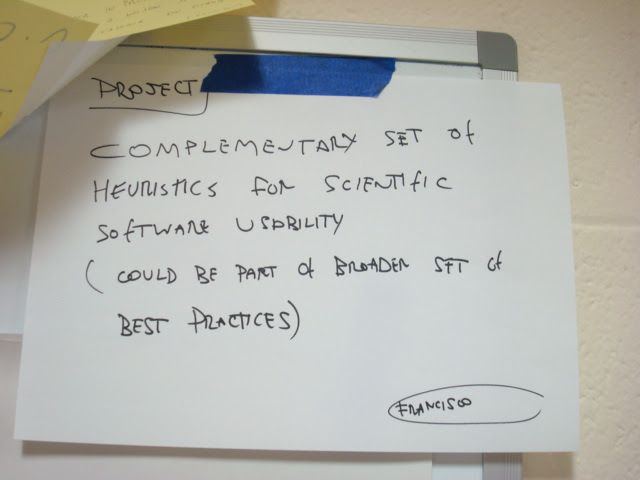 PROJECT
COMPLEMENTARY SET OF
HEURISTICS FOR SCIENTIFIC
SOFTWARE USABILITY
(COULD BE PART OF BROADER SET OF
BEST PRACTICES)
FRANCISCO